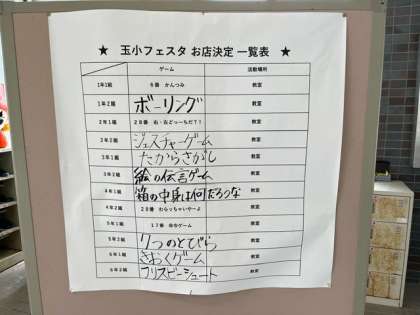 ★ 玉小フェスタ お店決定 一覧表 ★
ゲーム 活動場所
1年1組 6番 かんつみ 教室
1年2組 ボーリング 教室
2年1組 28番 右・左どっーちだ?! 教室
2年2組 ジェスチャーゲーム 教室
3年1組 たからさがし 教室
3年2組 絵の伝言ゲーム 教室
4年1組 箱の中身は何だろうな 教室
4年2組 29番 わらっちゃいやーよ 教室
5年1組 17番 ゲーム 教室
5年2組 7つのとびら 教室
6年1組 きおくゲーム 教室
6年2組 フリスビーシュート 教室